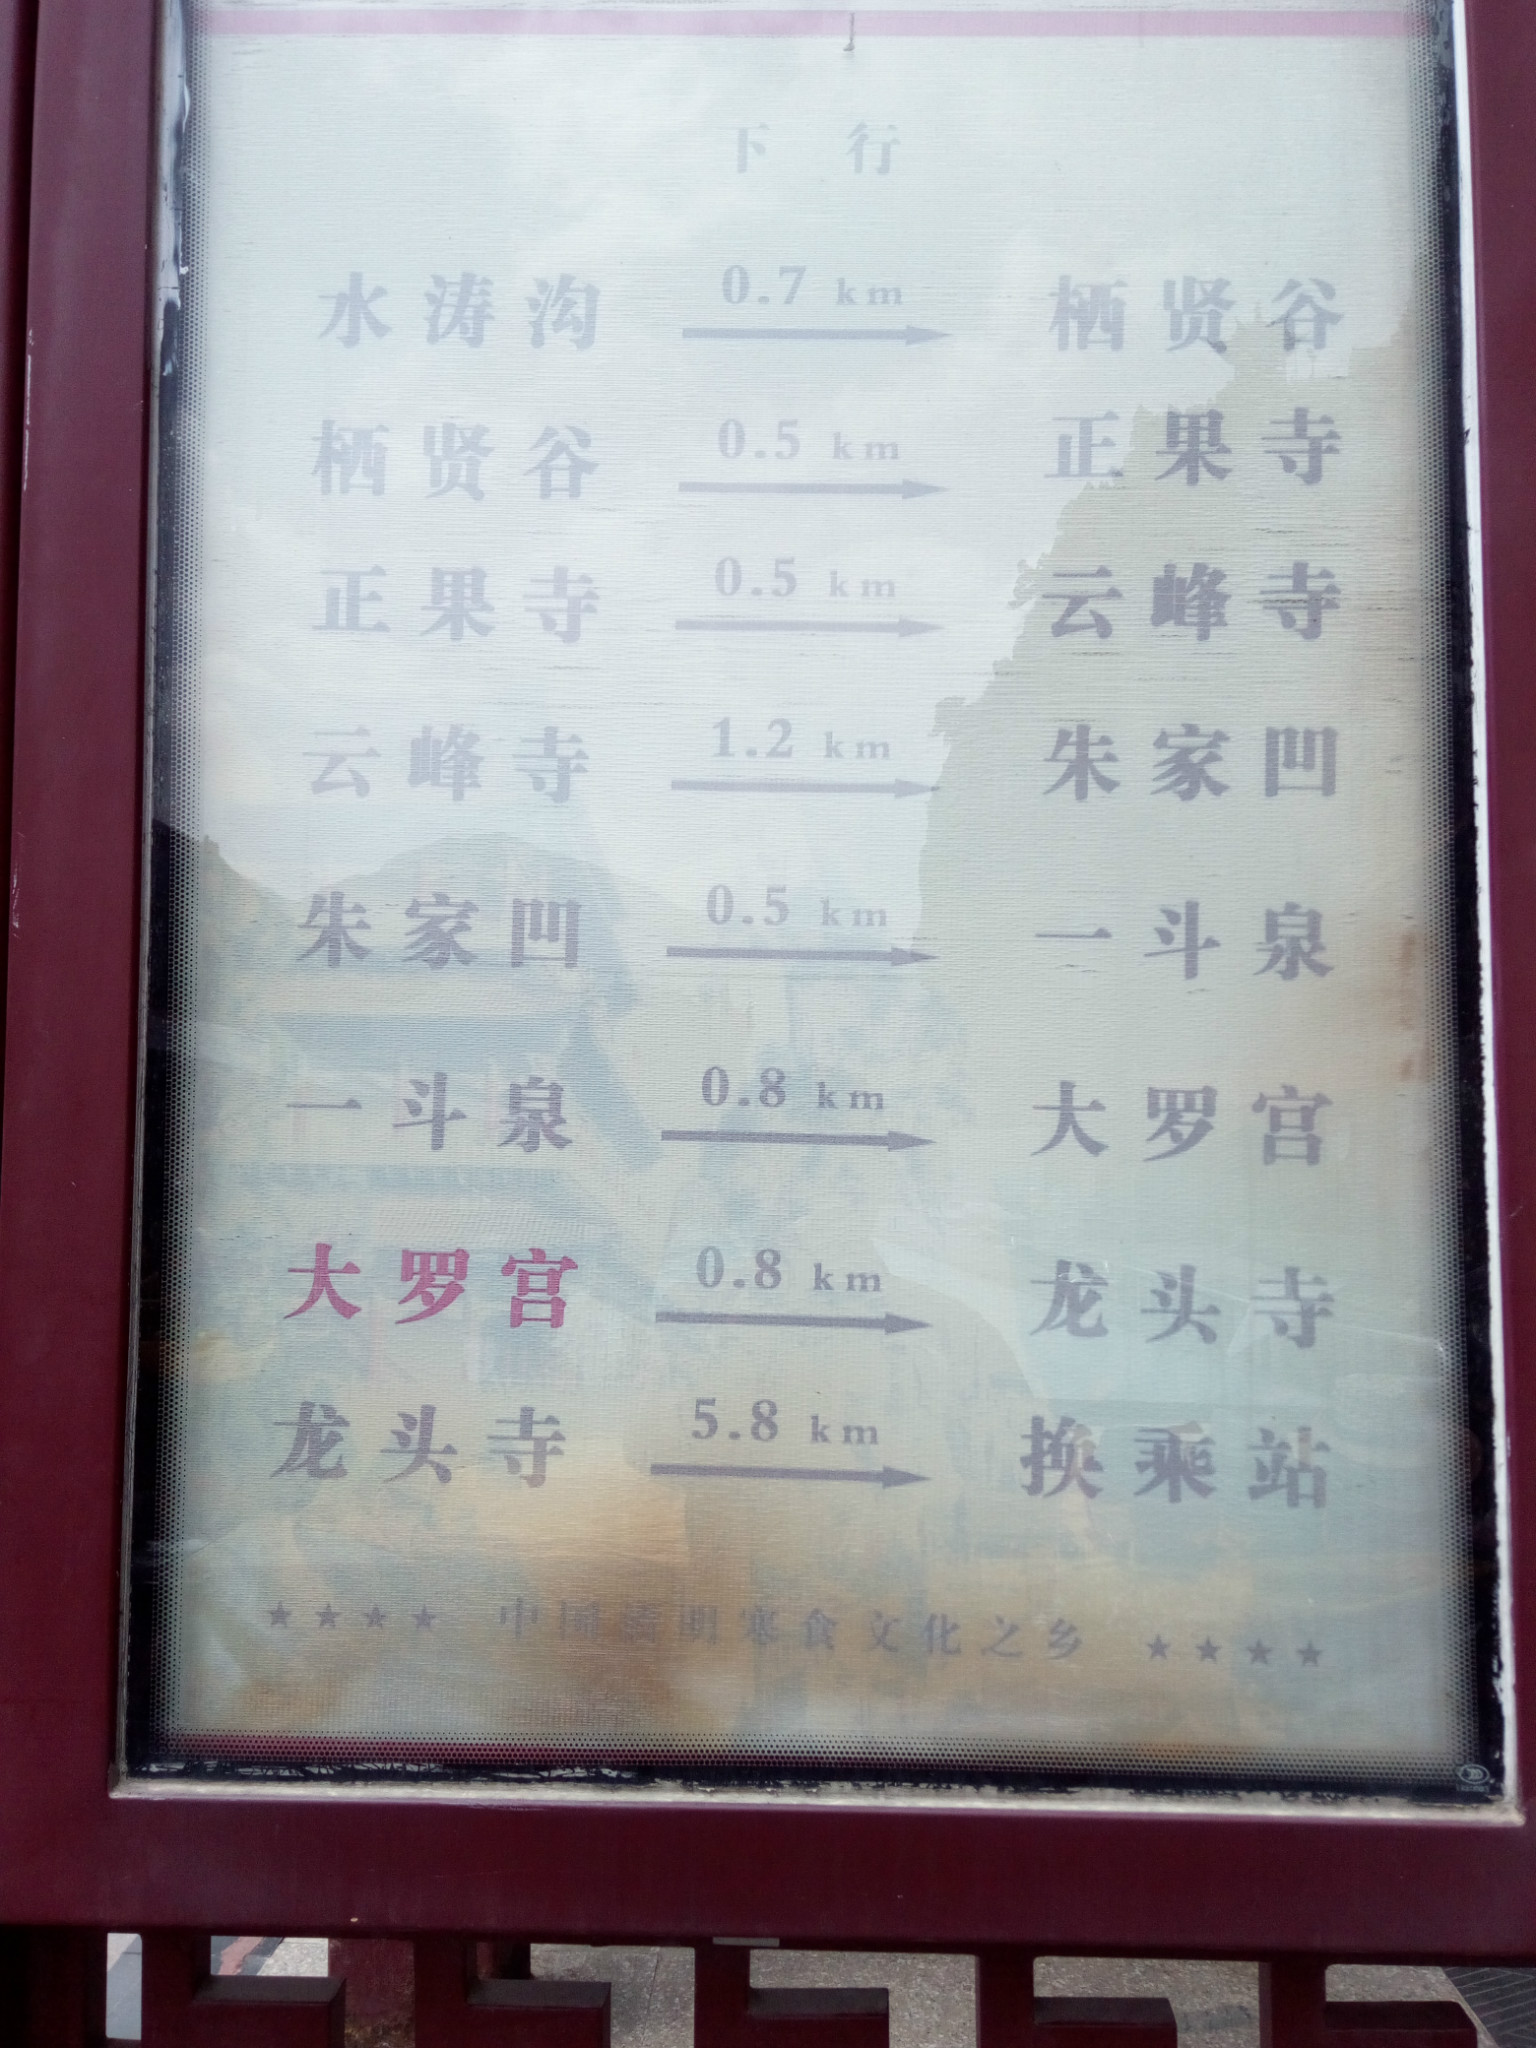 下行
水涛沟 0.7 km 栖贤谷
栖贤谷 0.5 km 正果寺
正果寺 0.5 km 云峰寺
云峰寺 1.2 km 朱家凹
朱家凹 0.5 km 一斗泉
一斗泉 0.8 km 大罗宫
大罗宫 0.8 km 龙头寺
龙头寺 5.8 km 换乘站
★★★★ 中国清明寒食文化之乡 ★★★★